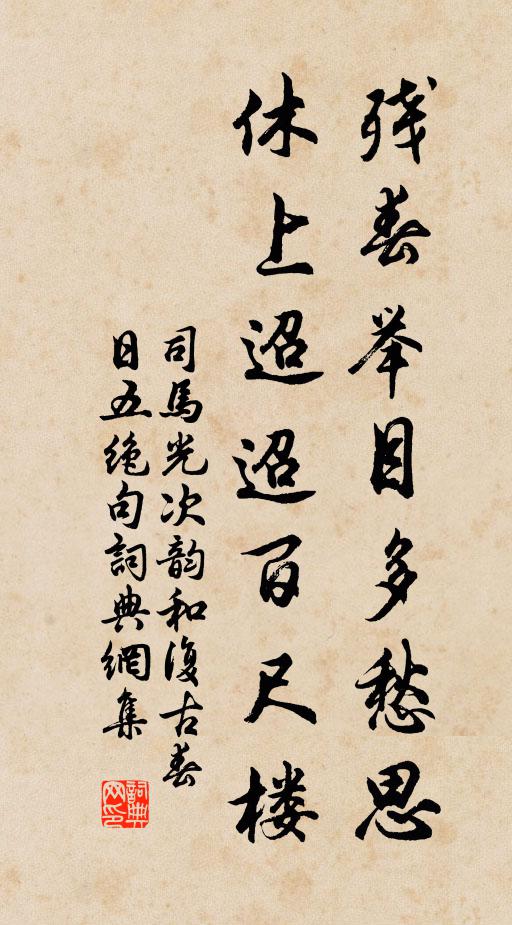 残春举目多愁思
休上迢迢百尺楼
司馬光次韵和復古春
日五绝句詞典網集
詞典网印